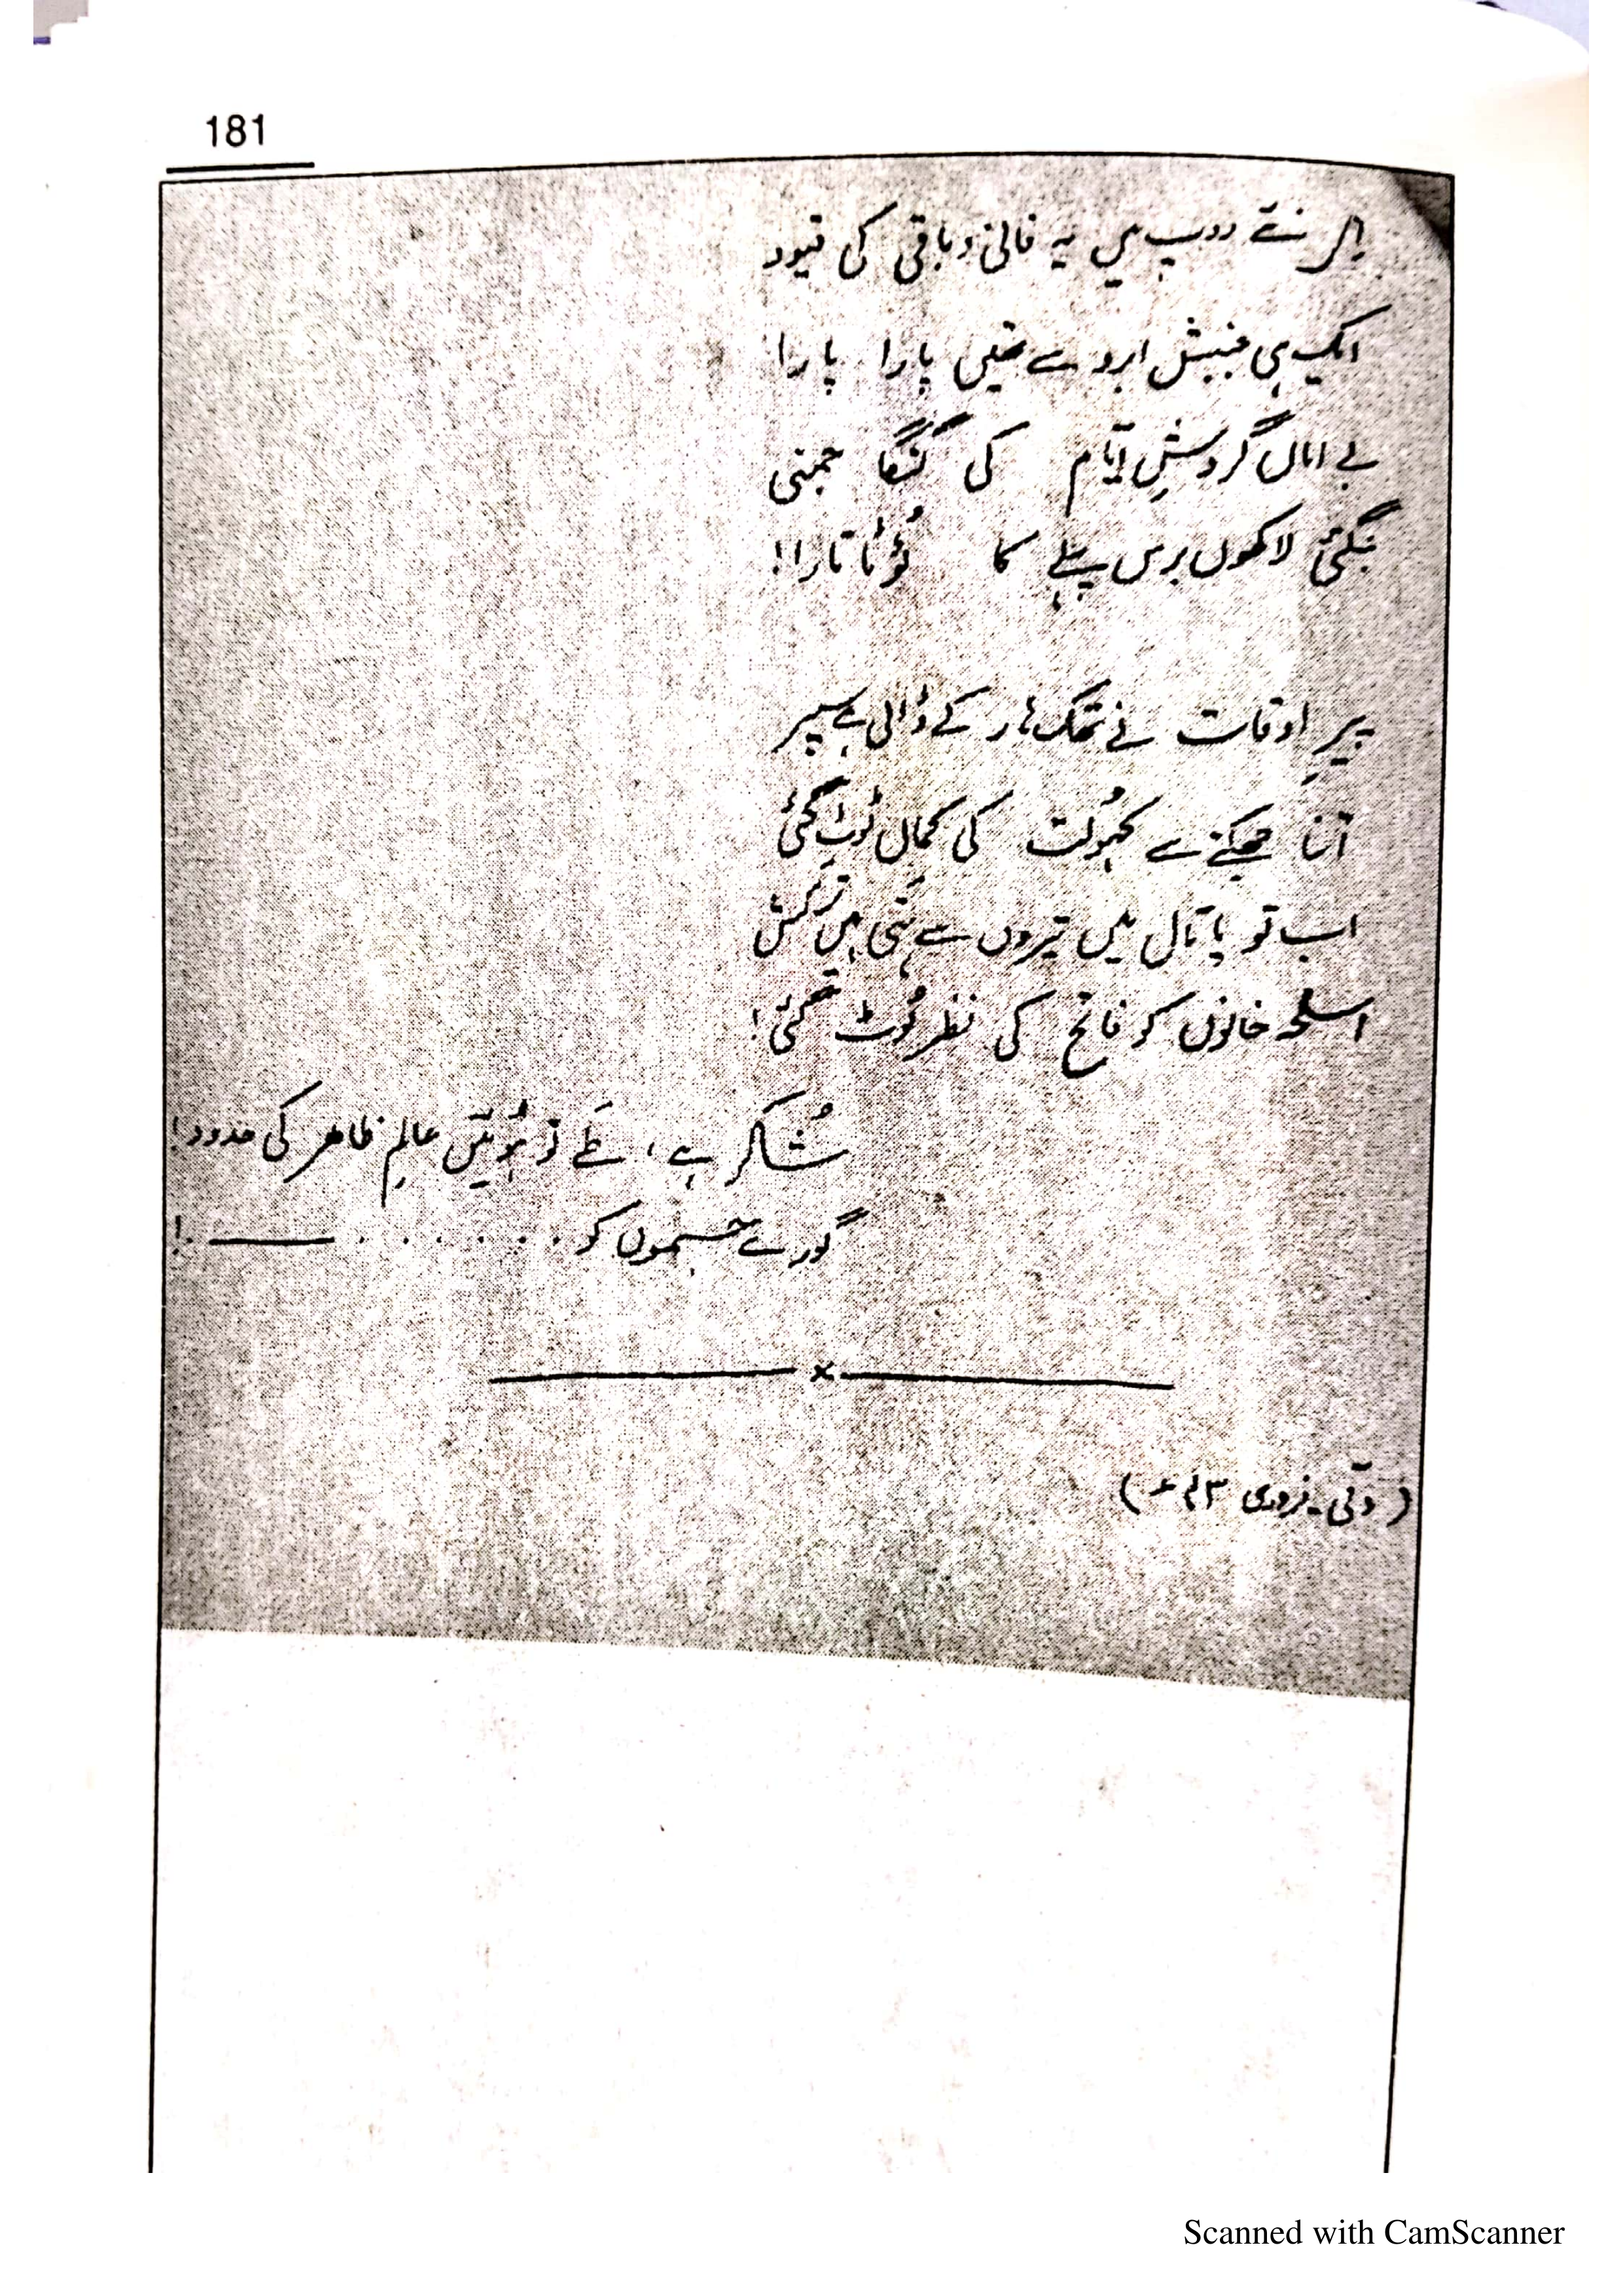 181
اک نئے روپ میں یہ فانی و باقی کی قیود
ایک ہی جنبش ابرو سے تھیں پارا پارا
بے اماں گردشِ ایّام کی گنگا جمنی
بنگئی لاکھوں برس پہلے کا ٹوٹا تارا!
پیرِ اوقات نے تھک ہار کے ڈالی ہے سپر
اتنا جھکنے سے کہُولت کی کماں ٹوٹ گئی
اب تو پاتال میں تیروں سے بنی ہیں ترکش
اسلحہ خانوں کو فاتح کی نظر لُوٹ گئی!
شُکر ہے، طَے تو ہُوئیں عالمِ ظاہر کی حدود!
گورے جسموں کو . . . . . . . ـــــــ!
x
(دلّی۔ فروری ۴۳ء)
Scanned with CamScanner